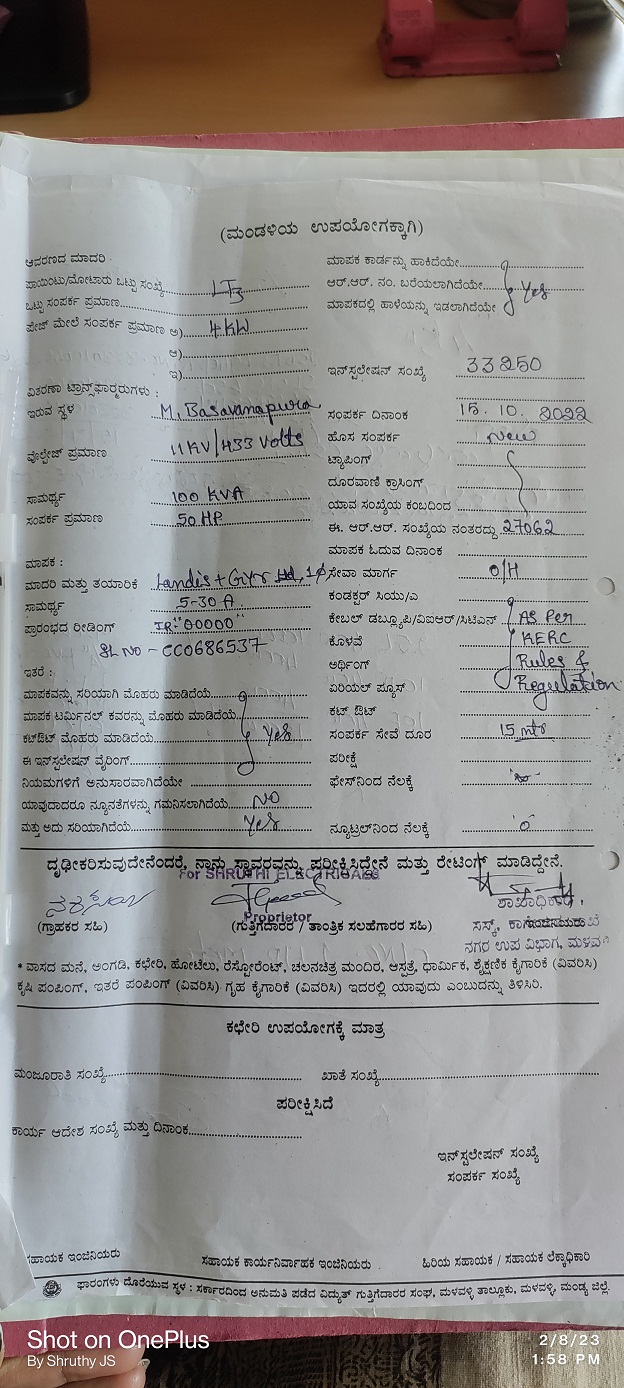 (ಮಂಡಳಿಯ ಉಪಯೋಗಕ್ಕಾಗಿ)
ಆವರಣದ ಮಾದರಿ
ಮಾಪಕ ಕಾರ್ಡನ್ನು ಹಾಕಿದೆಯೇ
ಪಾಯಿಂಟು/ಮೋಟಾರು ಒಟ್ಟು ಸಂಖ್ಯೆ LT3
ಆರ್.ಆರ್. ನಂ. ಬರೆಯಲಾಗಿದೆಯೇ Yes
ಒಟ್ಟು ಸಂಪರ್ಕ ಪ್ರಮಾಣ
ಮಾಪಕದಲ್ಲಿ ಹಾಳೆಯನ್ನು ಇಡಲಾಗಿದೆಯೇ
ಪೇಜ್ ಮೇಲೆ ಸಂಪರ್ಕ ಪ್ರಮಾಣ ಅ) 4KW
ಆ)
ಇ)
ಇನ್‌ಸ್ಟಲೇಷನ್ ಸಂಖ್ಯೆ 33250
ವಿತರಣಾ ಟ್ರಾನ್ಸ್‌ಫಾರ್ಮರುಗಳು :
ಇರುವ ಸ್ಥಳ M. Basavanapura
ಸಂಪರ್ಕ ದಿನಾಂಕ 15. 10. 2022
ಹೊಸ ಸಂಪರ್ಕ New
ವೋಲ್ಟೇಜ್ ಪ್ರಮಾಣ 11KV/433 Volts
ಟ್ಯಾಪಿಂಗ್
ದೂರವಾಣಿ ಕ್ರಾಸಿಂಗ್
ಸಾಮರ್ಥ್ಯ 100 KVA
ಯಾವ ಸಂಖ್ಯೆಯ ಕಂಬದಿಂದ
ಸಂಪರ್ಕ ಪ್ರಮಾಣ 50 HP
ಈ. ಆರ್.ಆರ್. ಸಂಖ್ಯೆಯ ನಂತರದ್ದು 27062
ಮಾಪಕ ಓದುವ ದಿನಾಂಕ
ಮಾಪಕ :
ಮಾದರಿ ಮತ್ತು ತಯಾರಿಕೆ Landis + Gyr Ltd, 1Φ
ಸೇವಾ ಮಾರ್ಗ O/H
ಸಾಮರ್ಥ್ಯ 5-30 A
ಕಂಡಕ್ಟರ್ ಸಿಯು/ಎ
ಪ್ರಾರಂಭದ ರೀಡಿಂಗ್ IR "00000"
ಕೇಬಲ್ ಡಬ್ಲ್ಯೂಪಿ/ವಿಐಆರ್/ಸಿಟಿಎನ್ As Per
SL NO - CC0686537
ಕೊಳವೆ KERC
ಇತರೆ :
ಅರ್ಥಿಂಗ್ Rules &
ಮಾಪಕವನ್ನು ಸರಿಯಾಗಿ ಮೊಹರು ಮಾಡಿದೆಯೆ
ಏರಿಯಲ್ ಪ್ಯೂಸ್ Regulation
ಮಾಪಕ ಟರ್ಮಿನಲ್ ಕವರನ್ನು ಮೊಹರು ಮಾಡಿದೆಯೆ
ಕಟ್ ಔಟ್
ಕಟ್‌ಔಟ್ ಮೊಹರು ಮಾಡಿದೆಯೆ Yes
ಸಂಪರ್ಕ ಸೇವೆ ದೂರ 15 mtr
ಈ ಇನ್‌ಸ್ಟಲೇಷನ್ ವೈರಿಂಗ್
ಪರೀಕ್ಷೆ
ನಿಯಮಗಳಿಗೆ ಅನುಸಾರವಾಗಿದೆಯೇ
ಫೇಸ್‌ನಿಂದ ನೆಲಕ್ಕೆ
ಯಾವುದಾದರೂ ನ್ಯೂನತೆಗಳನ್ನು ಗಮನಿಸಲಾಗಿದೆಯೆ NO
ಮತ್ತು ಅದು ಸರಿಯಾಗಿದೆಯೆ Yes
ನ್ಯೂಟ್ರಲ್‌ನಿಂದ ನೆಲಕ್ಕೆ 0
ದೃಢೀಕರಿಸುವುದೇನೆಂದರೆ, ನಾನು ಸ್ಥಾವರವನ್ನು ಪರೀಕ್ಷಿಸಿದ್ದೇನೆ ಮತ್ತು ರೇಟಿಂಗ್ ಮಾಡಿದ್ದೇನೆ.
For SHRUTHI ELECTRICALS
Proprietor
ಶಾಖಾಧಿಕಾರಿ,
(ಗ್ರಾಹಕರ ಸಹಿ) (ಗುತ್ತಿಗೆದಾರರ / ತಾಂತ್ರಿಕ ಸಲಹೆಗಾರರ ಸಹಿ)
ನಗರ ಉಪ ವಿಭಾಗ, ಮಳವಳ್ಳಿ
* ವಾಸದ ಮನೆ, ಅಂಗಡಿ, ಕಛೇರಿ, ಹೋಟೆಲು, ರೆಸ್ಟೋರೆಂಟ್, ಚಲನಚಿತ್ರ ಮಂದಿರ, ಆಸ್ಪತ್ರೆ, ಧಾರ್ಮಿಕ, ಶೈಕ್ಷಣಿಕ ಕೈಗಾರಿಕೆ (ವಿವರಿಸಿ)
ಕೃಷಿ ಪಂಪಿಂಗ್, ಇತರೆ ಪಂಪಿಂಗ್ (ವಿವರಿಸಿ) ಗೃಹ ಕೈಗಾರಿಕೆ (ವಿವರಿಸಿ) ಇದರಲ್ಲಿ ಯಾವುದು ಎಂಬುದನ್ನು ತಿಳಿಸಿರಿ.
ಕಛೇರಿ ಉಪಯೋಗಕ್ಕೆ ಮಾತ್ರ
ಮಂಜೂರಾತಿ ಸಂಖ್ಯೆ ಖಾತೆ ಸಂಖ್ಯೆ
ಪರೀಕ್ಷಿಸಿದೆ
ಕಾರ್ಯ ಆದೇಶ ಸಂಖ್ಯೆ ಮತ್ತು ದಿನಾಂಕ
ಇನ್‌ಸ್ಟಲೇಷನ್ ಸಂಖ್ಯೆ
ಸಂಪರ್ಕ ಸಂಖ್ಯೆ
ಸಹಾಯಕ ಇಂಜಿನಿಯರು ಸಹಾಯಕ ಕಾರ್ಯನಿರ್ವಾಹಕ ಇಂಜಿನಿಯರು ಹಿರಿಯ ಸಹಾಯಕ / ಸಹಾಯಕ ಲೆಕ್ಕಾಧಿಕಾರಿ
ಫಾರಂಗಳು ದೊರೆಯುವ ಸ್ಥಳ : ಸರ್ಕಾರದಿಂದ ಅನುಮತಿ ಪಡೆದ ವಿದ್ಯುತ್ ಗುತ್ತಿಗೆದಾರರ ಸಂಘ, ಮಳವಳ್ಳಿ ತಾಲ್ಲೂಕು, ಮಳವಳ್ಳಿ, ಮಂಡ್ಯ ಜಿಲ್ಲೆ.
Shot on OnePlus
By Shruthy JS
2/8/23
1:58 PM